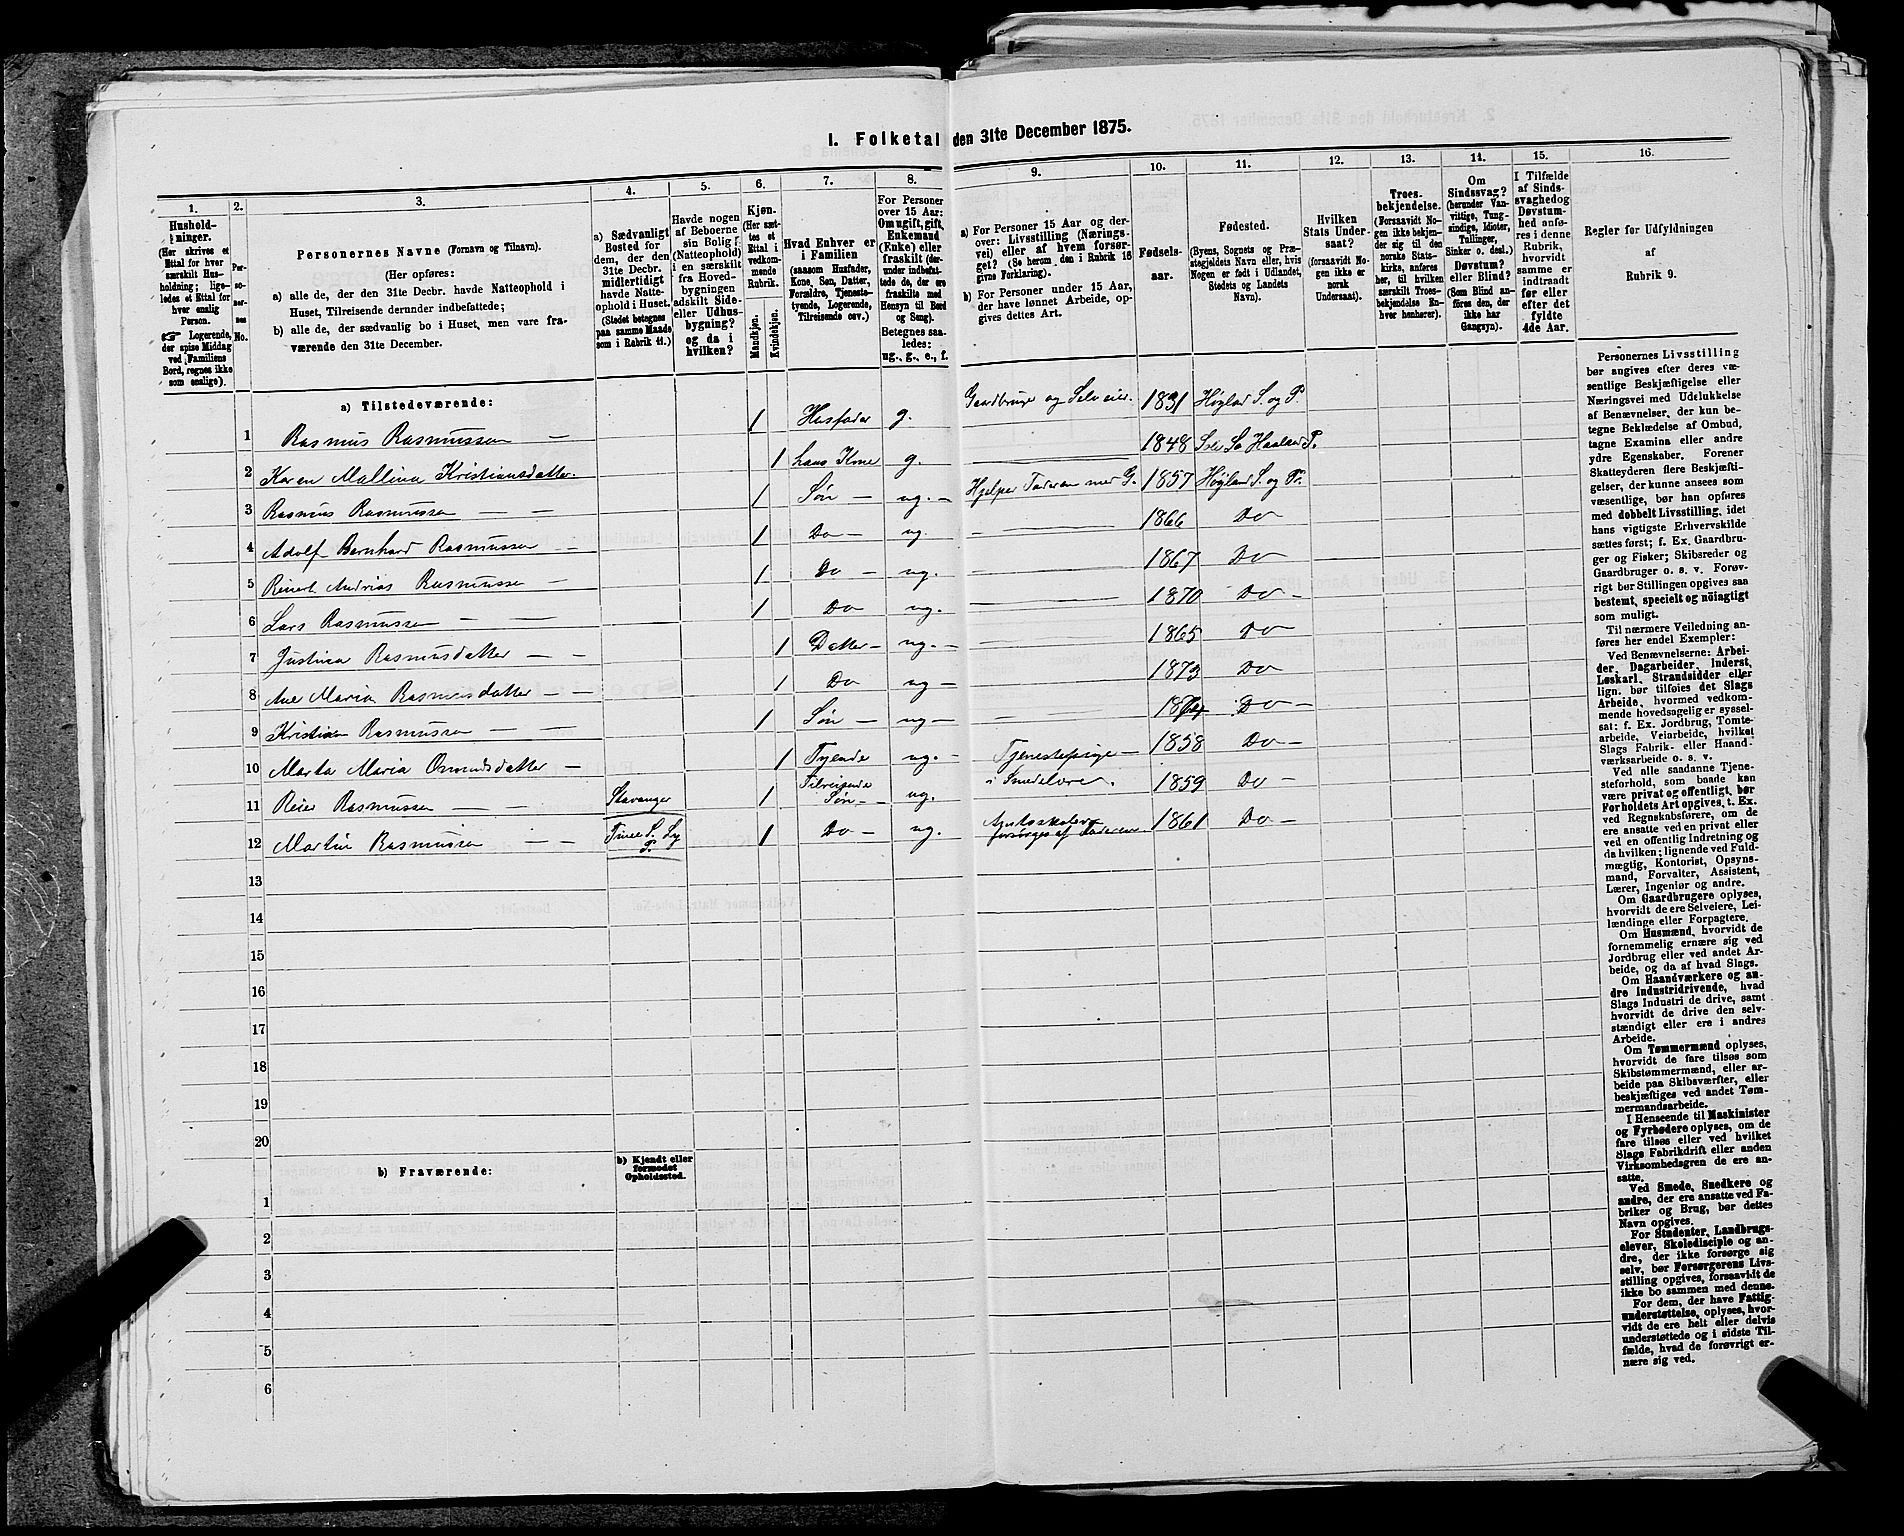 I. Folketal den 31te December 1875.
1.
2.
3.
4.
5.
6.
7.
8.
9.
10.
11.
12.
13.
14.
15.
16.
Hushold-
ninger.
(Her skrives et
Ettal for hver
særskilt Hus-
holdning; lige-
ledes et Ettal for
hver enslig
Person.
☞ Logerende,
der spise Middag
ved Familiens
Bord, regnes ikke
som enslige).
Per-
so-
ner-
nes
No.
Personernes Navne (Fornavn og Tilnavn).
(Her opføres:
a) alle de, der den 31te Decbr. havde Natteophold i
Huset, Tilreisende derunder indbefattede;
b) alle de, der sædvanlig bo i Huset, men vare fra-
værende den 31te December.
a) Sædvanligt
Bosted for
dem, der den
31te Decbr.
midlertidigt
havde Natte-
ophold i Huset.
(Stedet betegnes
paa samme Maade
som i Rubrik 11.)
Havde nogen
af Beboerne
sin Bolig
(Natteophold)
i en særskilt
fra Hoved-
bygningen
adskilt Side-
eller Udhus-
bygning?
og da i
hvilken?
Kjøn.
(Her sæt-
tes et
Ettal i
vedkom-
mende
Rubrik.
Mandkjøn.
Kvindekjøn.
Hvad Enhver er
i Familien
(saasom Husfader,
Kone, Søn, Datter,
Forældre, Tjeneste-
tyende, Logerende,
Tilreisende osv.)
For Personer
over 15 Aar:
Om ugift, gift,
Enkemand
(Enke) eller
fraskilt (der-
under indbefat-
tede de, der ere
fraskilte med
Hensyn til Bord
og Seng).
Betegnes saa-
ledes:
ug., g., e., f.
a) For Personer 15 Aar og der-
over: Livsstilling (Nærings-
vei) eller af hvem forsør-
get? (Se herom, den i Rubrik 16
givne Forklaring).
b) For Personer under 15 Aar,
der have lønnet Arbeide, op-
gives dettes Art.
Fødsels-
aar.
Fødested.
(Byens, Sognets og Præ-
stegjeldets Navn eller, hvis
Nogen er født i Udlandet,
Stedets og Landets
Navn).
Hvilken
Stats Under-
saat?
(forsaavidt No-
gen ikke er
norsk
Undersaat).
Troes-
bekjendelse.
(Forsaavidt No-
gen ikke bekjen-
der sig til den
norske Stats-
kirke, anføres
her, til hvilken
særskilt Troes-
bekjendelse En-
hver henhører).
Om
Sindssvag?
(herunder Van-
vittige, Tung-
sindige, Idioter,
Tullinger,
Sinker o. desl.)
Døvstum?
eller Blind?
(Som Blind an-
føres den, der
ikke har
Gangsyn).
I Tilfælde
af Sinds-
svaghed og
Døvstum-
hed anfø-
res i denne
Rubrik,
hvorvidt
samme er
indtraadt
før eller
efter det
fyldte
4de Aar.
Regler for Udfyldningen
af
Rubrik 9.
a) Tilstedeværende:
1 Rasmus Rasmussen — 1 Husfader g. Gaardbruge og Selveier. 1831 Høyland S. og P.
2 Karen Mallina Kristiansdatter. 1 hans Kone g. 1848 Sole So Haaland P.
3 Rasmus Rasmussen — — 1 Søn — ug. — Hjelper Faderen med G. 1857 Høyland S. og Pr.
4 Adolf Bernhard Rasmussen — 1 Do — ug. — 1866 Do
5 Reinert Andrias Rasmussen — 1 Do ug. 1867 Do
6 Lars Rasmussen — — 1 Do ug. 1870 Do —
7 Justina Rasmusdatter — — 1 Datter — ug. — 1865 Do
8 Ane Maria Rasmusdatter — — 1 Do ug — 1873 Do
9 Kristian Rasmussen — — 1 Søn — ug — Do —
10 Marta Maria Omundsdatter — 1 Tyende ug. — Tjenestepige — 1858 Do —
11 Reier Rasmussen — — Stavanger 1 Tilreisende Søn — ug. i Smedelære. 1859 Do —
12 Martin Rasmussen — — Time S. Ly P. 1 Do — ug. Amtsskolen forsørges af Faderen. 1861 Do —
13
14
15
16
17
18
19
20
b) Fraværende:
b) Kjendt eller
formodet
Opholdssted.
1
2
3
4
5
6
Personernes Livsstilling
bør angives efter deres væ-
sentlige Beskjæftigelse eller
Næringsvei med Udelukkelse
af Benævnelser, der kun be-
tegne Beklædelse af Ombud,
tagne Examina eller andre
ydre Egenskaber. Forener
Skatteyderen flere Beskjæfti-
gelser, der kunne ansees som
væsenlige, bør han opføres
med dobbelt Livsstilling, idet
hans vigtigste Erhvervskilde
sættes først; f. Ex. Gaardbru-
ger og Fisker; Skibsreder og
Gaardbruger o. s. v. Forøv-
rigt bør Stillingen opgives saa
bestemt, specielt og nöiagtigt
som muligt.
Til nærmere Veiledning an-
føres her endel Exempler:
Ved Benævnelserne: Arbei-
der, Dagarbeider, Inderst,
Løskarl, Strandsidder eller
lign. bør tilføies det Slags
Arbeide, hvormed vedkom-
mende hovedsagelig er syssel-
sat; f. Ex. Jordbrug, Tomte-
arbeide, Veiarbeide, hvilket
Slags Fabrik- eller Haand-
værksarbeide o. s. v.
Ved alle saadanne Tjene-
steforhold, som baade kan
være privat og offentligt, bør
Forholdets Art opgives, t. Ex.
ved Regnskabsførere, om de
ere ansatte ved en privat eller
ved en offentlig Indretning og
da hvilken; lignende ved Fuld-
mægtig, Kontorist, Opsyns-
mand, Forvalter, Assistent,
Lærer, Ingeniør og andre.
Om Gaardbrugere oplyses,
hvorvidt de ere Selveiere, Lei-
lændinge eller Forpagtere.
Om Husmænd, hvorvidt de
fornemmelig ernære sig ved
Jordbrug eller ved andet Ar-
beide, og da af hvad Slags.
Om Haandværkere og an-
dre Industridrivende, hvad
Slags Industri de drive, samt
hvorvidt de drive den selv-
stændigt eller ere i andres
Arbeide.
Om Tømmermænd oplyses,
hvorvidt de fare tilsøs som
Skibstømmermænd, eller ar-
beide paa Skibsværfter, eller
beskjæftiges ved andet Tøm-
mermandsarbeide.
I Henseende til Maskinister
og Fyrbødere oplyses, om de
fare tilsøs eller ved hvilket
Slags Fabrikdrift eller anden
Virksomhedsgren de ere an-
satte.
Ved Smede, Snedkere og
andre, der ere ansatte ved Fa-
briker og Brug, bør dettes
Navn opgives.
For Studenter, Landbrugs-
elever, Skoledisciple og an-
dre, der ikke forsørge sig
selv, bør Forsørgerens Livs-
stilling opgives, forsaavidt de
ikke bo sammen med denne.
For dem, der have Fattig-
understøttelse, oplyses, hvor-
vidt de ere helt eller delvis
understøttede og i sidste Til-
fælde, hvad de forøvrigt er-
nære sig ved.